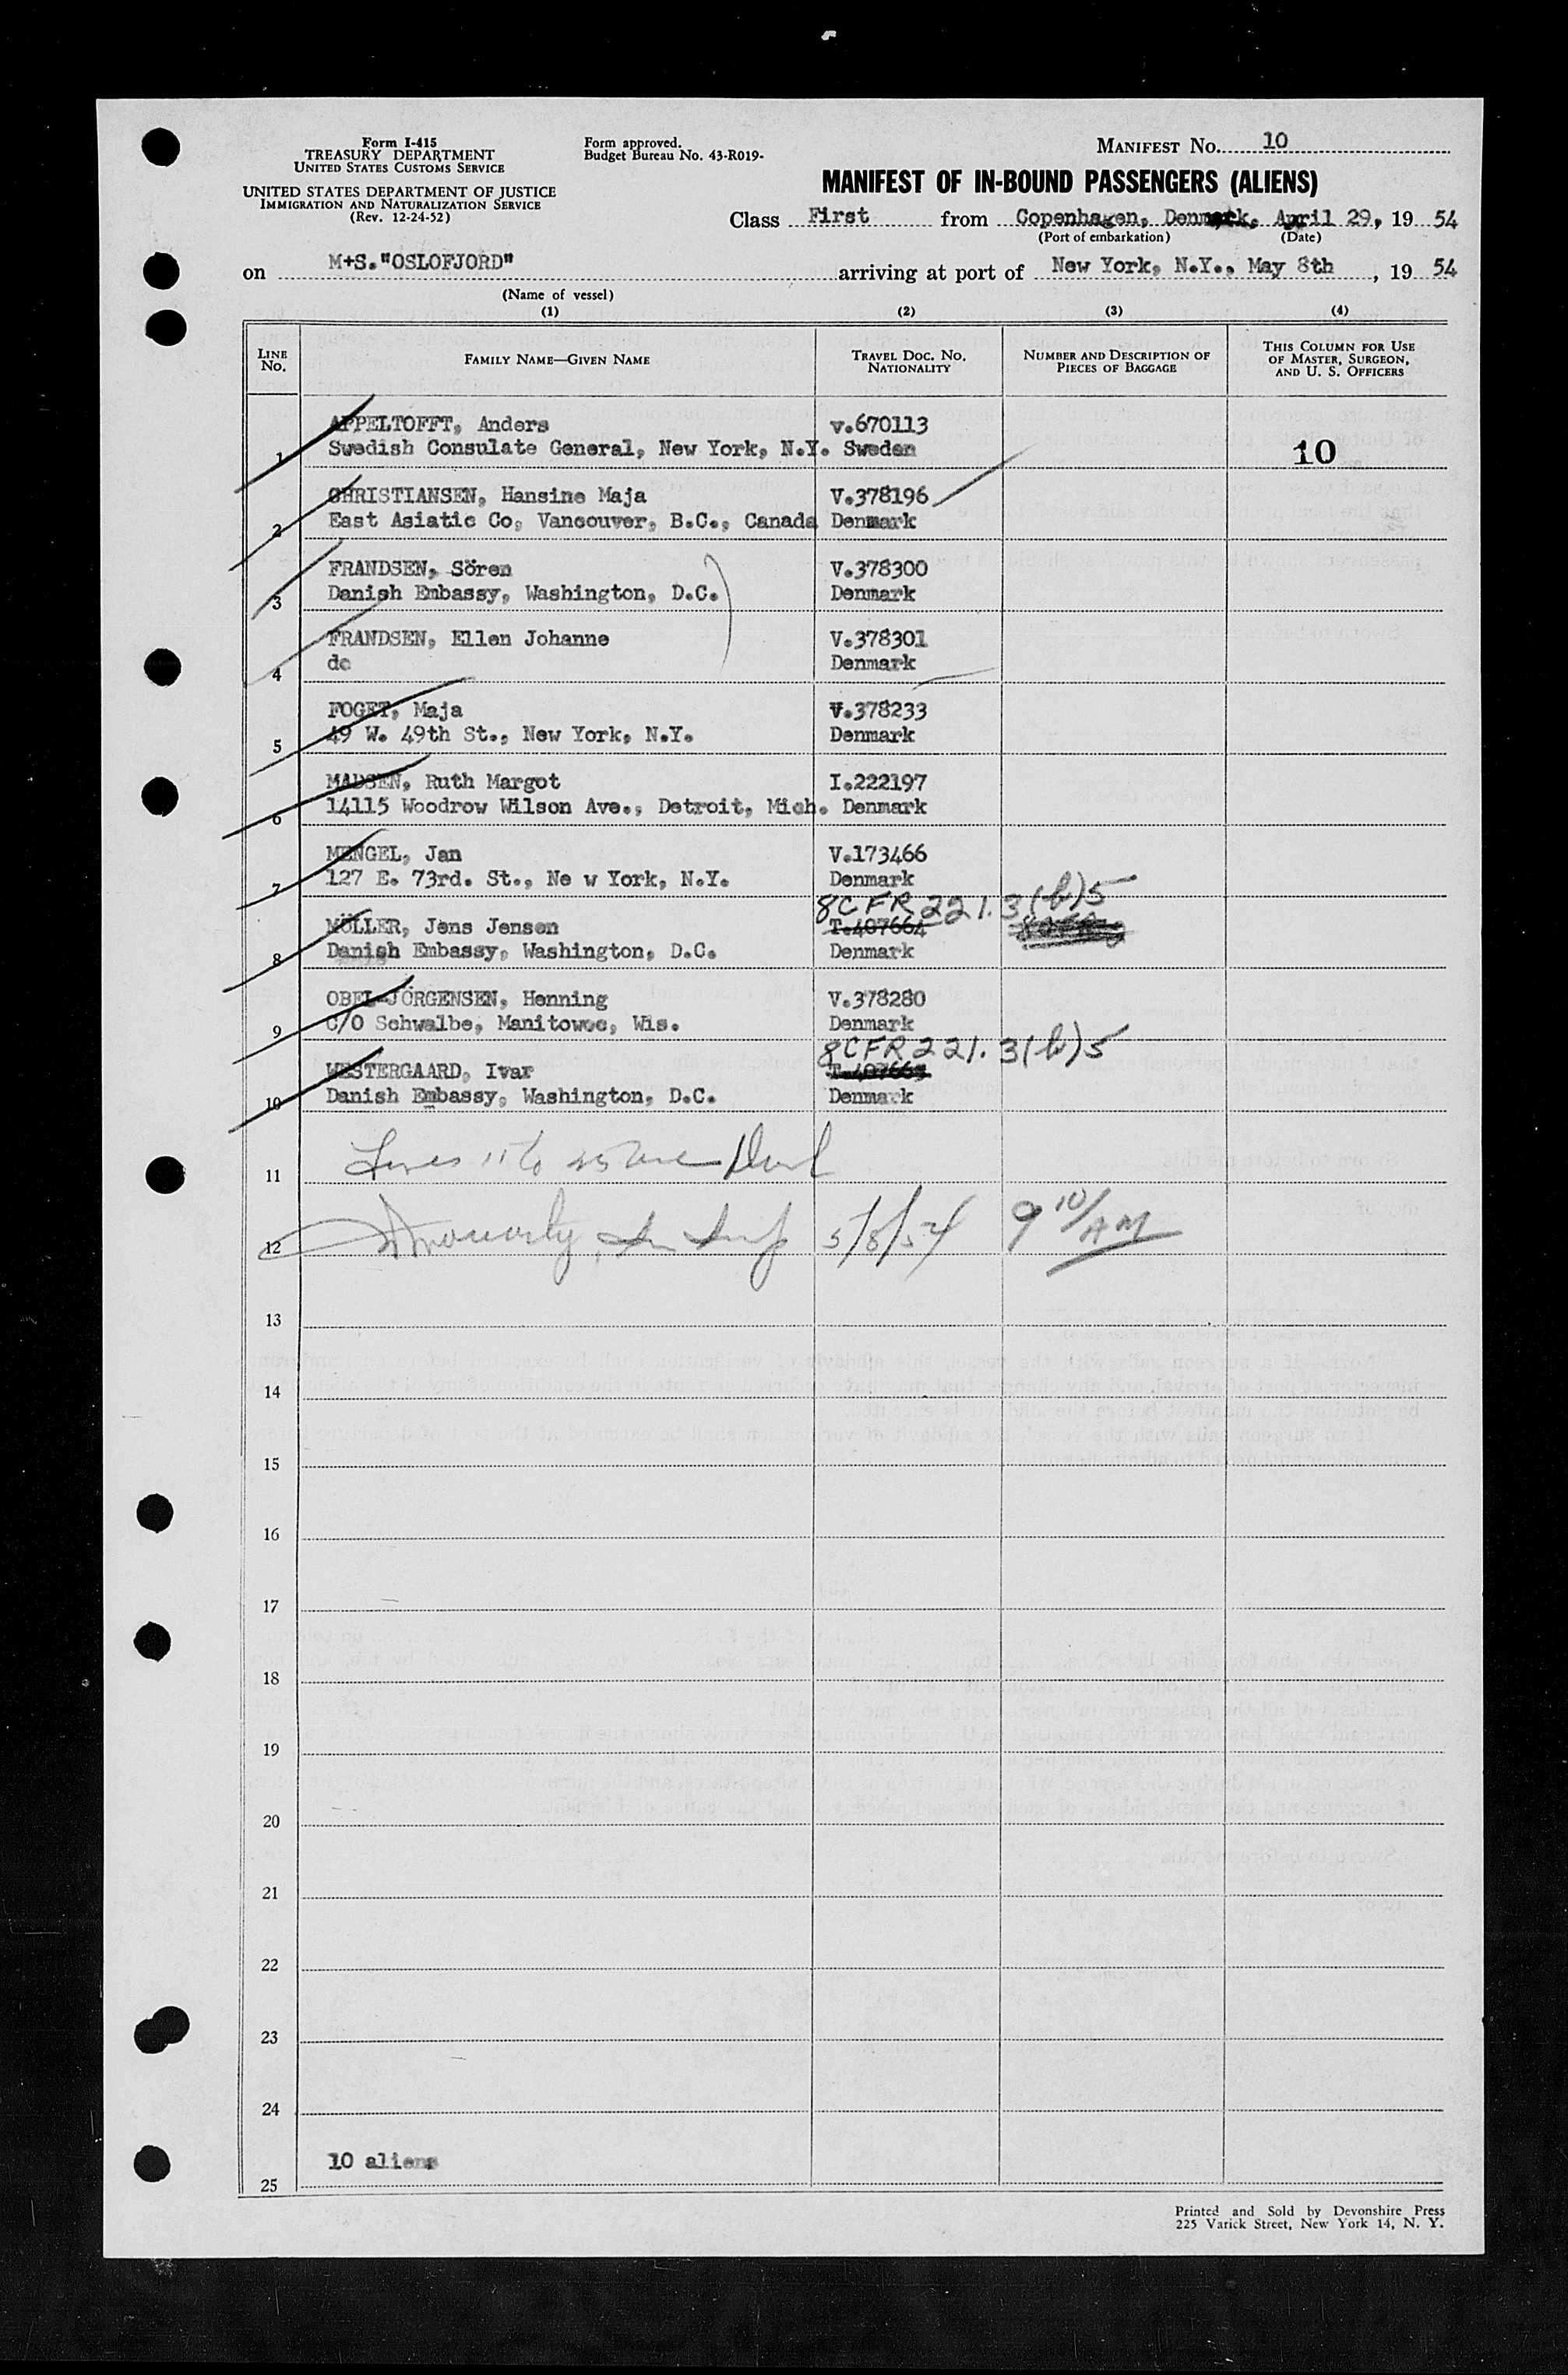 Form I-415
TREASURY DEPARTMENT
UNITED STATES CUSTOMS SERVICE
UNITED STATES DEPARTMENT OF JUSTICE
IMMIGRATION AND NATURALIZATION SERVICE
(Rev. 12-24-52)
Form approved.
Budget Bureau No. 43-R019-
MANIFEST No. 10
MANIFEST OF IN-BOUND PASSENGERS (ALIENS)
Class First from Copenhagen, Denmark, April 29, 19 54
(Port of embarkation) (Date)
on M+S."OSLOFJORD" arriving at port of New York, N.Y., May 8th, 19 54
(Name of vessel)
(1) (2) (3) (4)
LINE No. FAMILY NAME—GIVEN NAME TRAVEL DOC. No. NATIONALITY NUMBER AND DESCRIPTION OF PIECES OF BAGGAGE THIS COLUMN FOR USE OF MASTER, SURGEON, AND U. S. OFFICERS
APPELTOFFT, Anders v.670113
1 Swedish Consulate General, New York, N.Y. Sweden 10
CHRISTIANSEN, Hansine Maja V.378196
2 East Asiatic Co, Vancouver, B.C., Canada Denmark
FRANDSEN, Sören V.378300
3 Danish Embassy, Washington, D.C. Denmark
FRANDSEN, Ellen Johanne V.378301
4 do Denmark
FOGET, Maja V.378233
5 49 W. 49th St., New York, N.Y. Denmark
MADSEN, Ruth Margot I.222197
6 14115 Woodrow Wilson Ave., Detroit, Mich. Denmark
MENGEL, Jan V.173466
7 127 E. 73rd. St., Ne w York, N.Y. Denmark
8CFR 221.3(b)5
MÖLLER, Jens Jensen T.407664
8 Danish Embassy, Washington, D.C. Denmark
OBEL-JÖRGENSEN, Henning V.378280
9 C/O Schwalbe, Manitowoc, Wis. Denmark
8CFR 221.3(b)5
WESTERGAARD, Ivar
10 Danish Embassy, Washington, D.C. Denmark
11 Lines 11 to 25 are
12 5/8/54 9 10/AM
13
14
15
16
17
18
19
20
21
22
23
24
10 aliens
25
Printed and Sold by Devonshire Press
225 Varick Street, New York 14, N. Y.